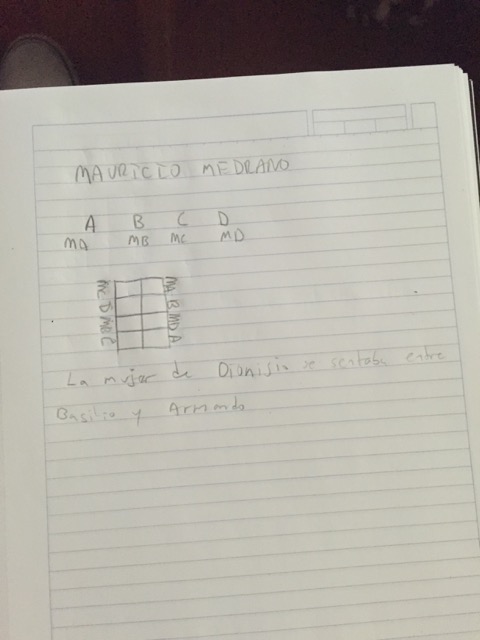 MAURICIO MEDRANO
A B C D
MA MB MC MD
MC D MB C
MA B MD A
La mujer de Dionisio se sentaba entre
Basilio y Armando